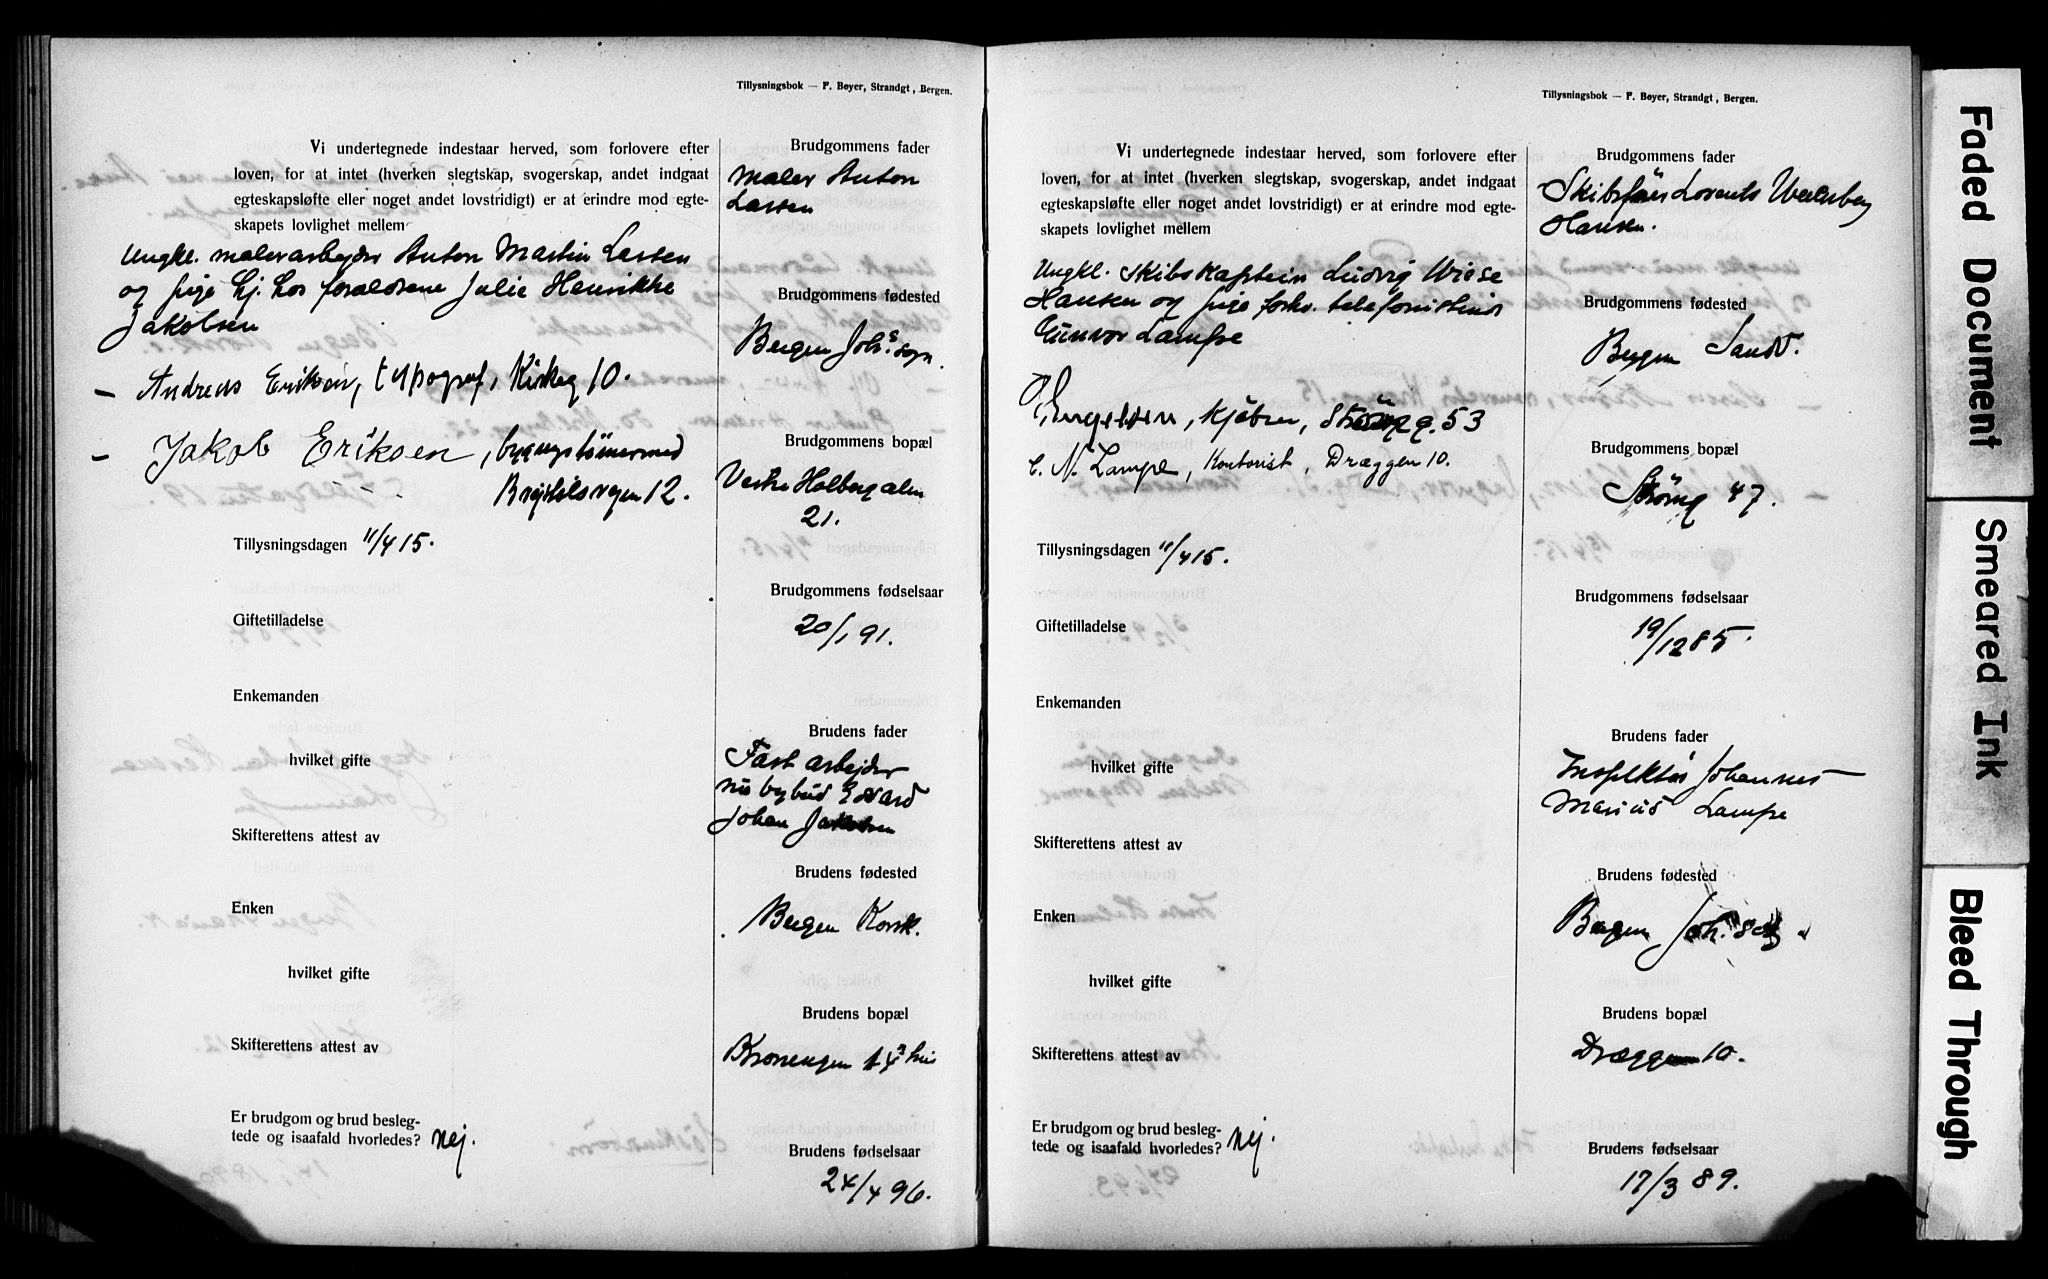 Tillysningsbok — F. Beyer, Strandgt, Bergen.
Vi undertegnede indestaar herved, som forlovere efter
loven, for at intet (hverken slegtskap, svogerskap, andet indgaat
egteskapsløfte eller noget andet lovstridigt) er at erindre mod egte-
skapets lovlighet mellem
Ungkl. malerarbejder Anton Martin Larsen
og pige hj. hos forældrene Julie Henrikke
Jakobsen
— Andreas Eriksen, typograf, Kirkeg 10.
— Jakob Eriksen, bygningstømmermed
12.
Tillysningsdagen 11/4 15.
Giftetilladelse
Enkemanden
hvilket gifte
Skifterettens attest av
Enken
hvilket gifte
Skifterettens attest av
Er brudgom og brud besleg-
tede og isaafald hvorledes? nej.
Brudgommens fader
Maler Anton
Larsen
Brudgommens fødested
Bergen Johs sogn.
Brudgommens bopæl
Vestre Holbergalm
21.
Brudgommens fødselsaar
20/1 91.
Brudens fader
Fast arbejder
Edvard
Johan Jakobsen
Brudens fødested
Bergen Korsk.
Brudens bopæl
Kronengen
Brudens fødselsaar
24/4 96.
Tillysningsbok — F. Beyer, Strandgt, Bergen.
Vi undertegnede indestaar herved, som forlovere efter
loven, for at intet (hverken slegtskap, svogerskap, andet indgaat
egteskapsløfte eller noget andet lovstridigt) er at erindre mod egte-
skapets lovlighet mellem
Ungkl. Skibskaptein Ludvig Wiese
Hansen og pige forhv. telefonistinde
Gunvor Lampe
Engelsen, kjøbm, 53
C. N. Lampe, Kontorist, Dræggen 10.
Tillysningsdagen 11/4 15.
Giftetilladelse
Enkemanden
hvilket gifte
Skifterettens attest av
Enken
hvilket gifte
Skifterettens attest av
Er brudgom og brud besleg-
tede og isaafald hvorledes? nej.
Brudgommens fader
Skibsfører Lorents
Hansen.
Brudgommens fødested
Bergen Sandv.
Brudgommens bopæl
47.
Brudgommens fødselsaar
19/12 85.
Brudens fader
Inspektør Johannes
Marius Lampe
Brudens fødested
Bergen Joh.
Brudens bopæl
Dræggen 10.
Brudens fødselsaar
17/3 89.
Faded Document
Smeared Ink
Bleed Through